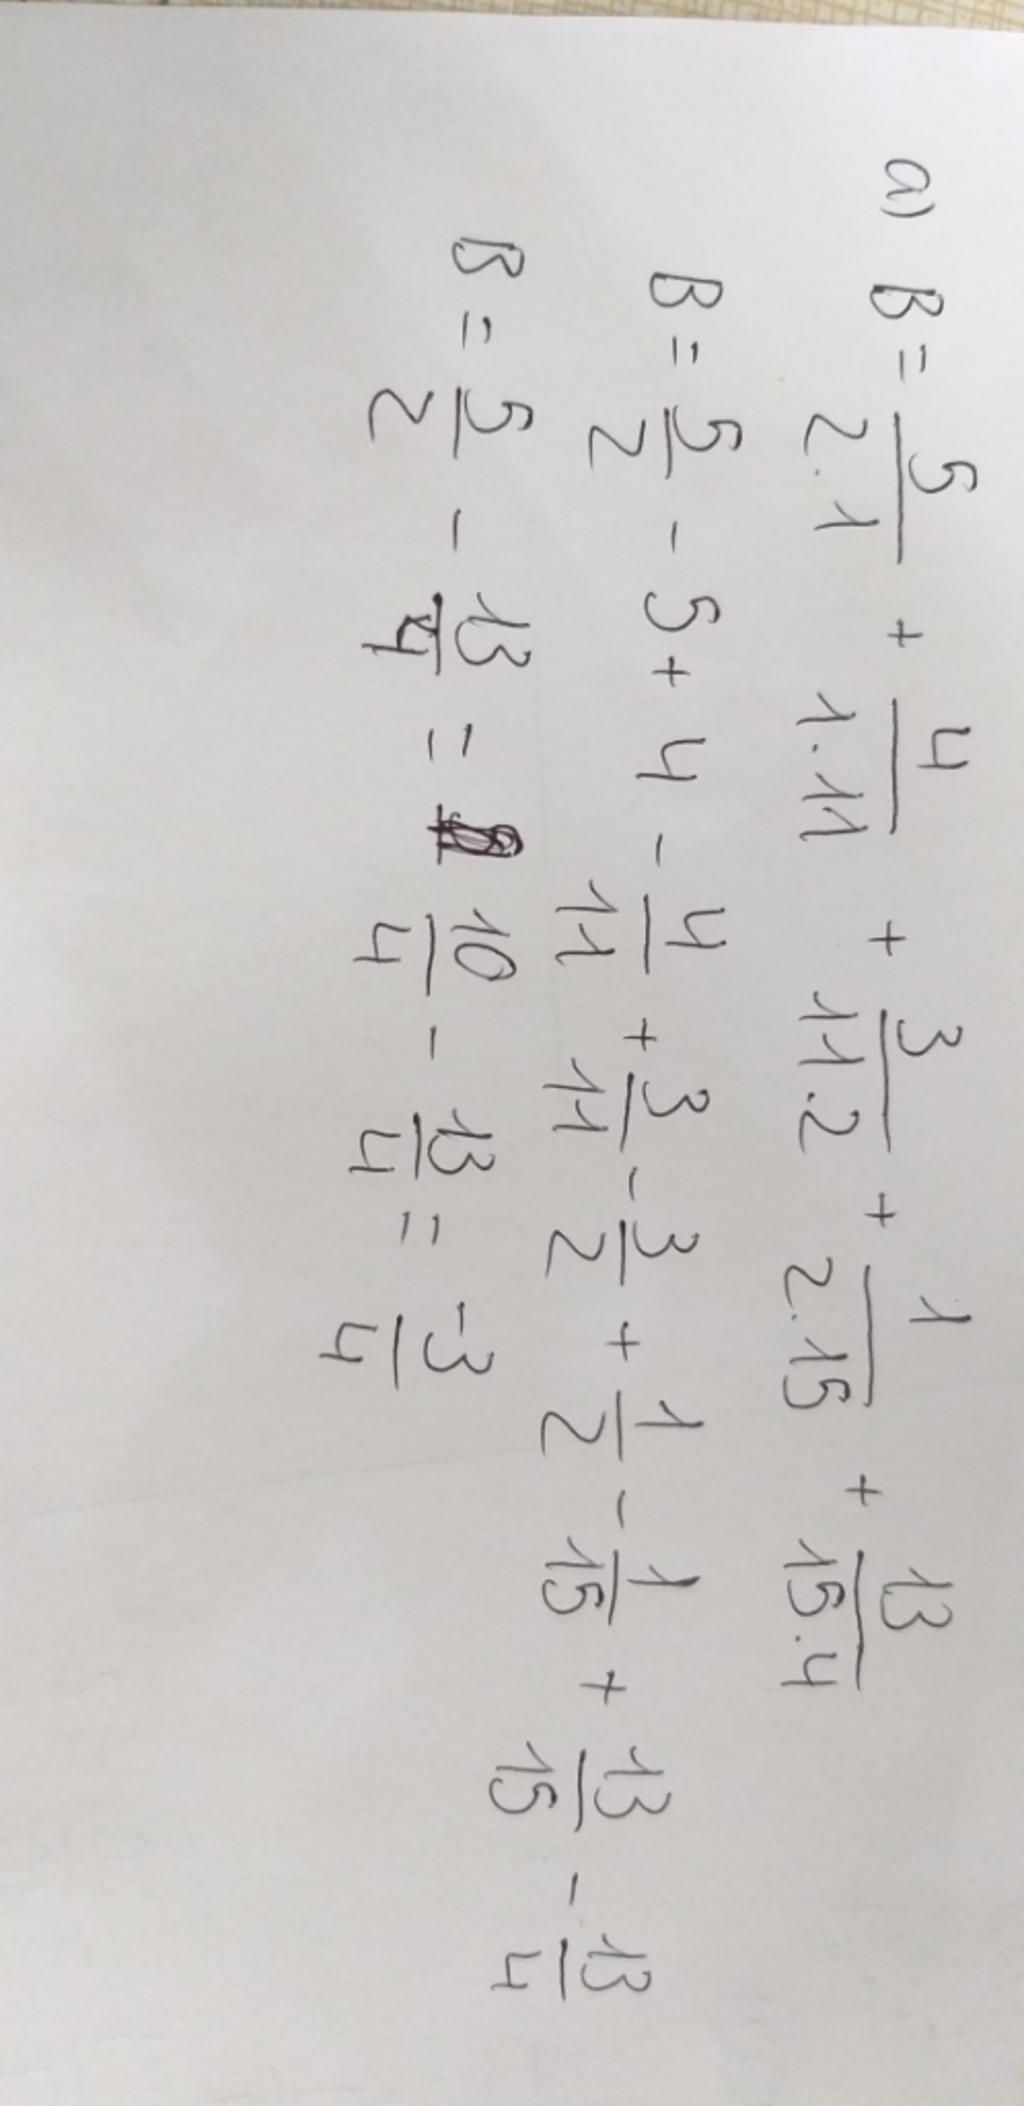 a) B = 5/2.1 + 4/1.11 + 3/11.2 + 1/2.15 + 13/15.4
B = 5/2 - 5 + 4 - 4/11 + 3/11 - 3/2 + 1/2 - 1/15 + 13/15 - 13/4
B = 5/2 - 13/4 = 10/4 - 13/4 = -3/4